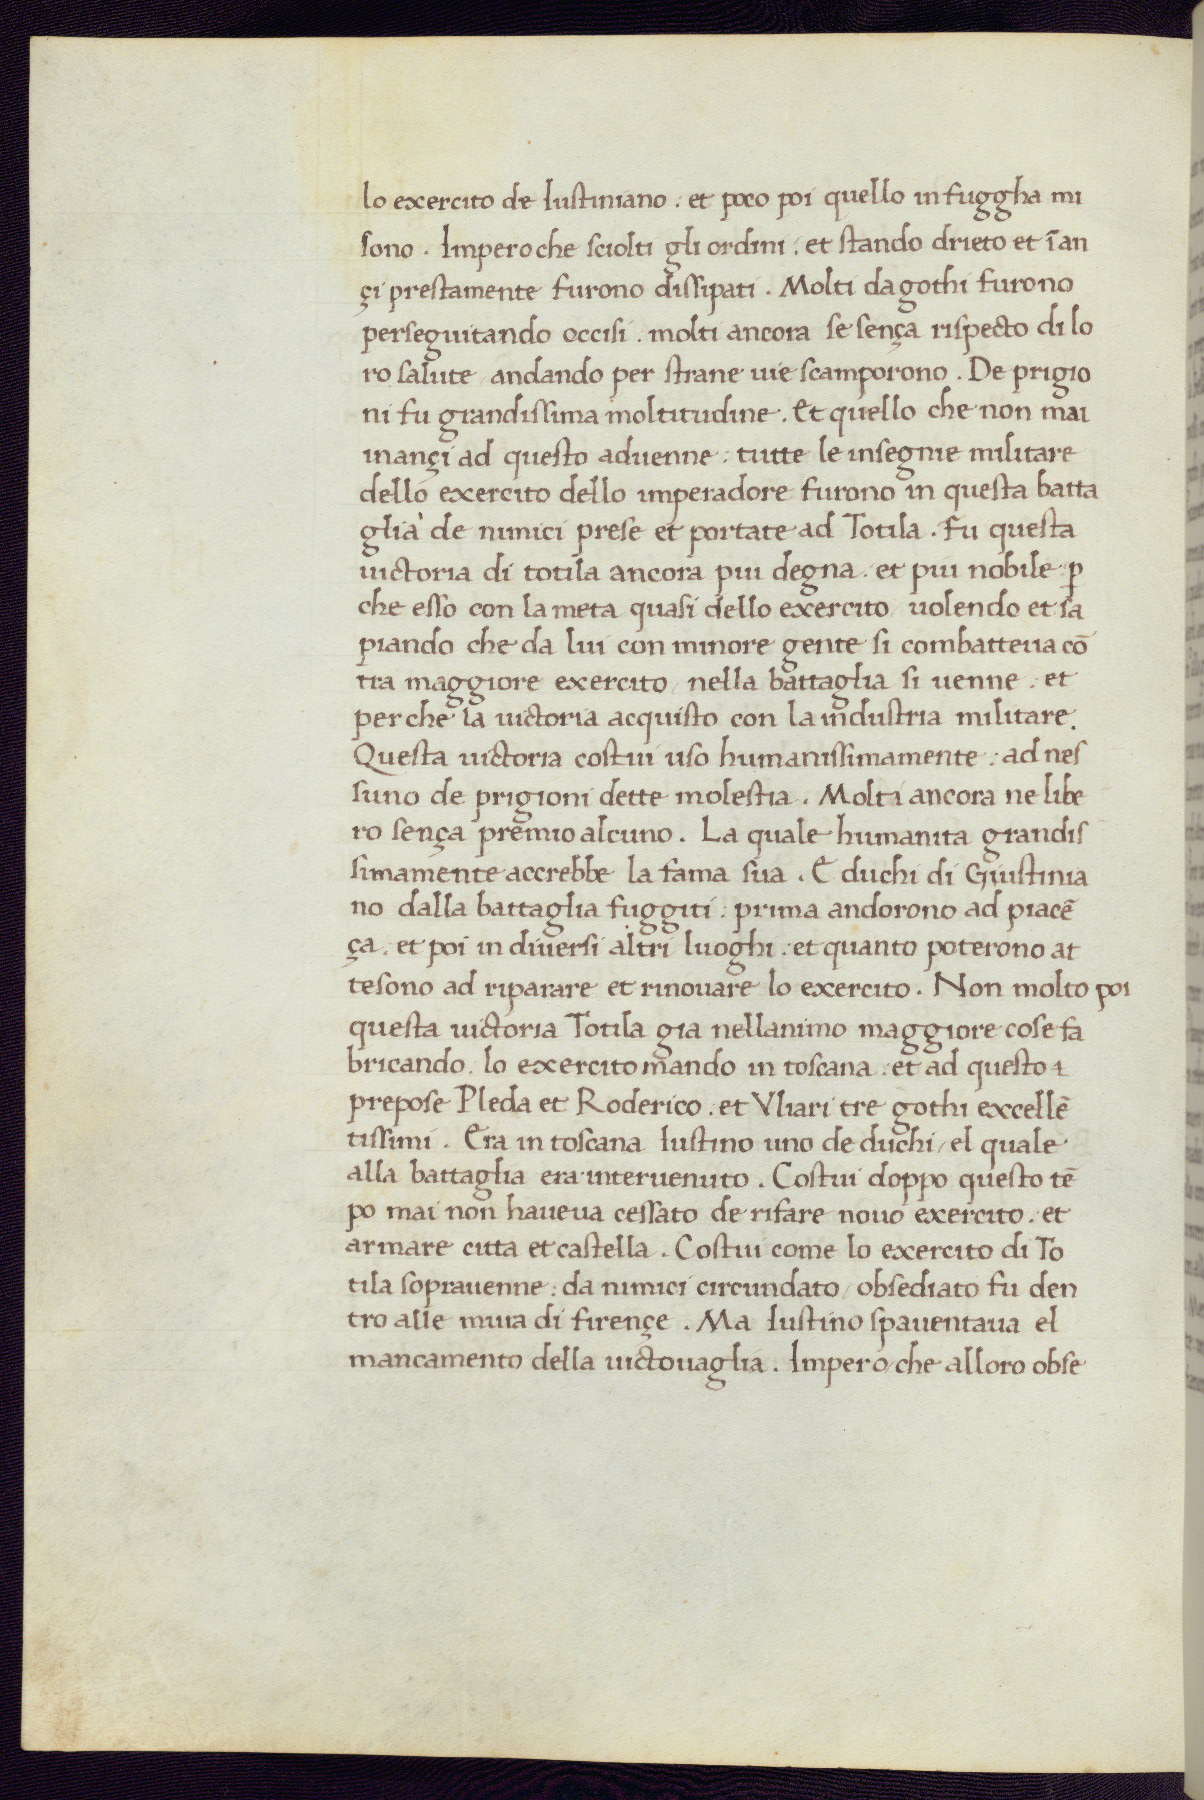 lo exercito de Iustiniano . et poco poi quello in fuggha mi
sono . Impero che sciolti gli ordini . et stando drieto et ī an
çi prestamente furono dissipati . Molti da gothi furono
perseguitando occisi . molti ancora se sença rispecto di lo
ro salute / andando per strane uie scamporono . De prigio
ni fu grandissima moltitudine . Et quello che non mai
inançi ad questo aduenne : tutte le insegnie militare
dello exercito dello imperadore furono in questa batta
glia de nimici prese et portate ad Totila . Fu questa
uictoria di totila ancora piu degna . et piu nobile : p
che esso con la meta quasi dello exercito / uolendo et sa
piando che da lui con minore gente si combatteua cō
tra maggiore exercito / nella battaglia si uenne . et
perche la uictoria acquisto con la industria militare .
Questa uictoria costui uso humanissimamente : ad nes
suno de prigioni dette molestia . Molti ancora ne libe
ro sença premio alcuno . La quale humanita grandis
simamente accrebbe la fama sua . E duchi di Giustinia
no dalla battaglia fuggiti : prima andorono ad piacē
ça . et poi in diuersi altri luoghi . et quanto poterono at
tesono ad riparare et rinouare lo exercito . Non molto poi
questa uictoria Totila gia nellanimo maggiore cose fa
bricando . lo exercito mando in toscana . et ad questo
prepose Pleda et Roderico . et Vliari tre gothi excellē
tissimi . Era in toscana Iustino uno de duchi / el quale
alla battaglia era interuenuto . Costui doppo questo tē
po mai non haueua cessato de rifare nouo exercito . et
armare citta et castella . Costui come lo exercito di To
tila soprauenne : da nimici circundato / obsediato fu den
tro alle mura di firençe . Ma Iustino spauentaua el
mancamento della uictouaglia . Impero che alloro obse